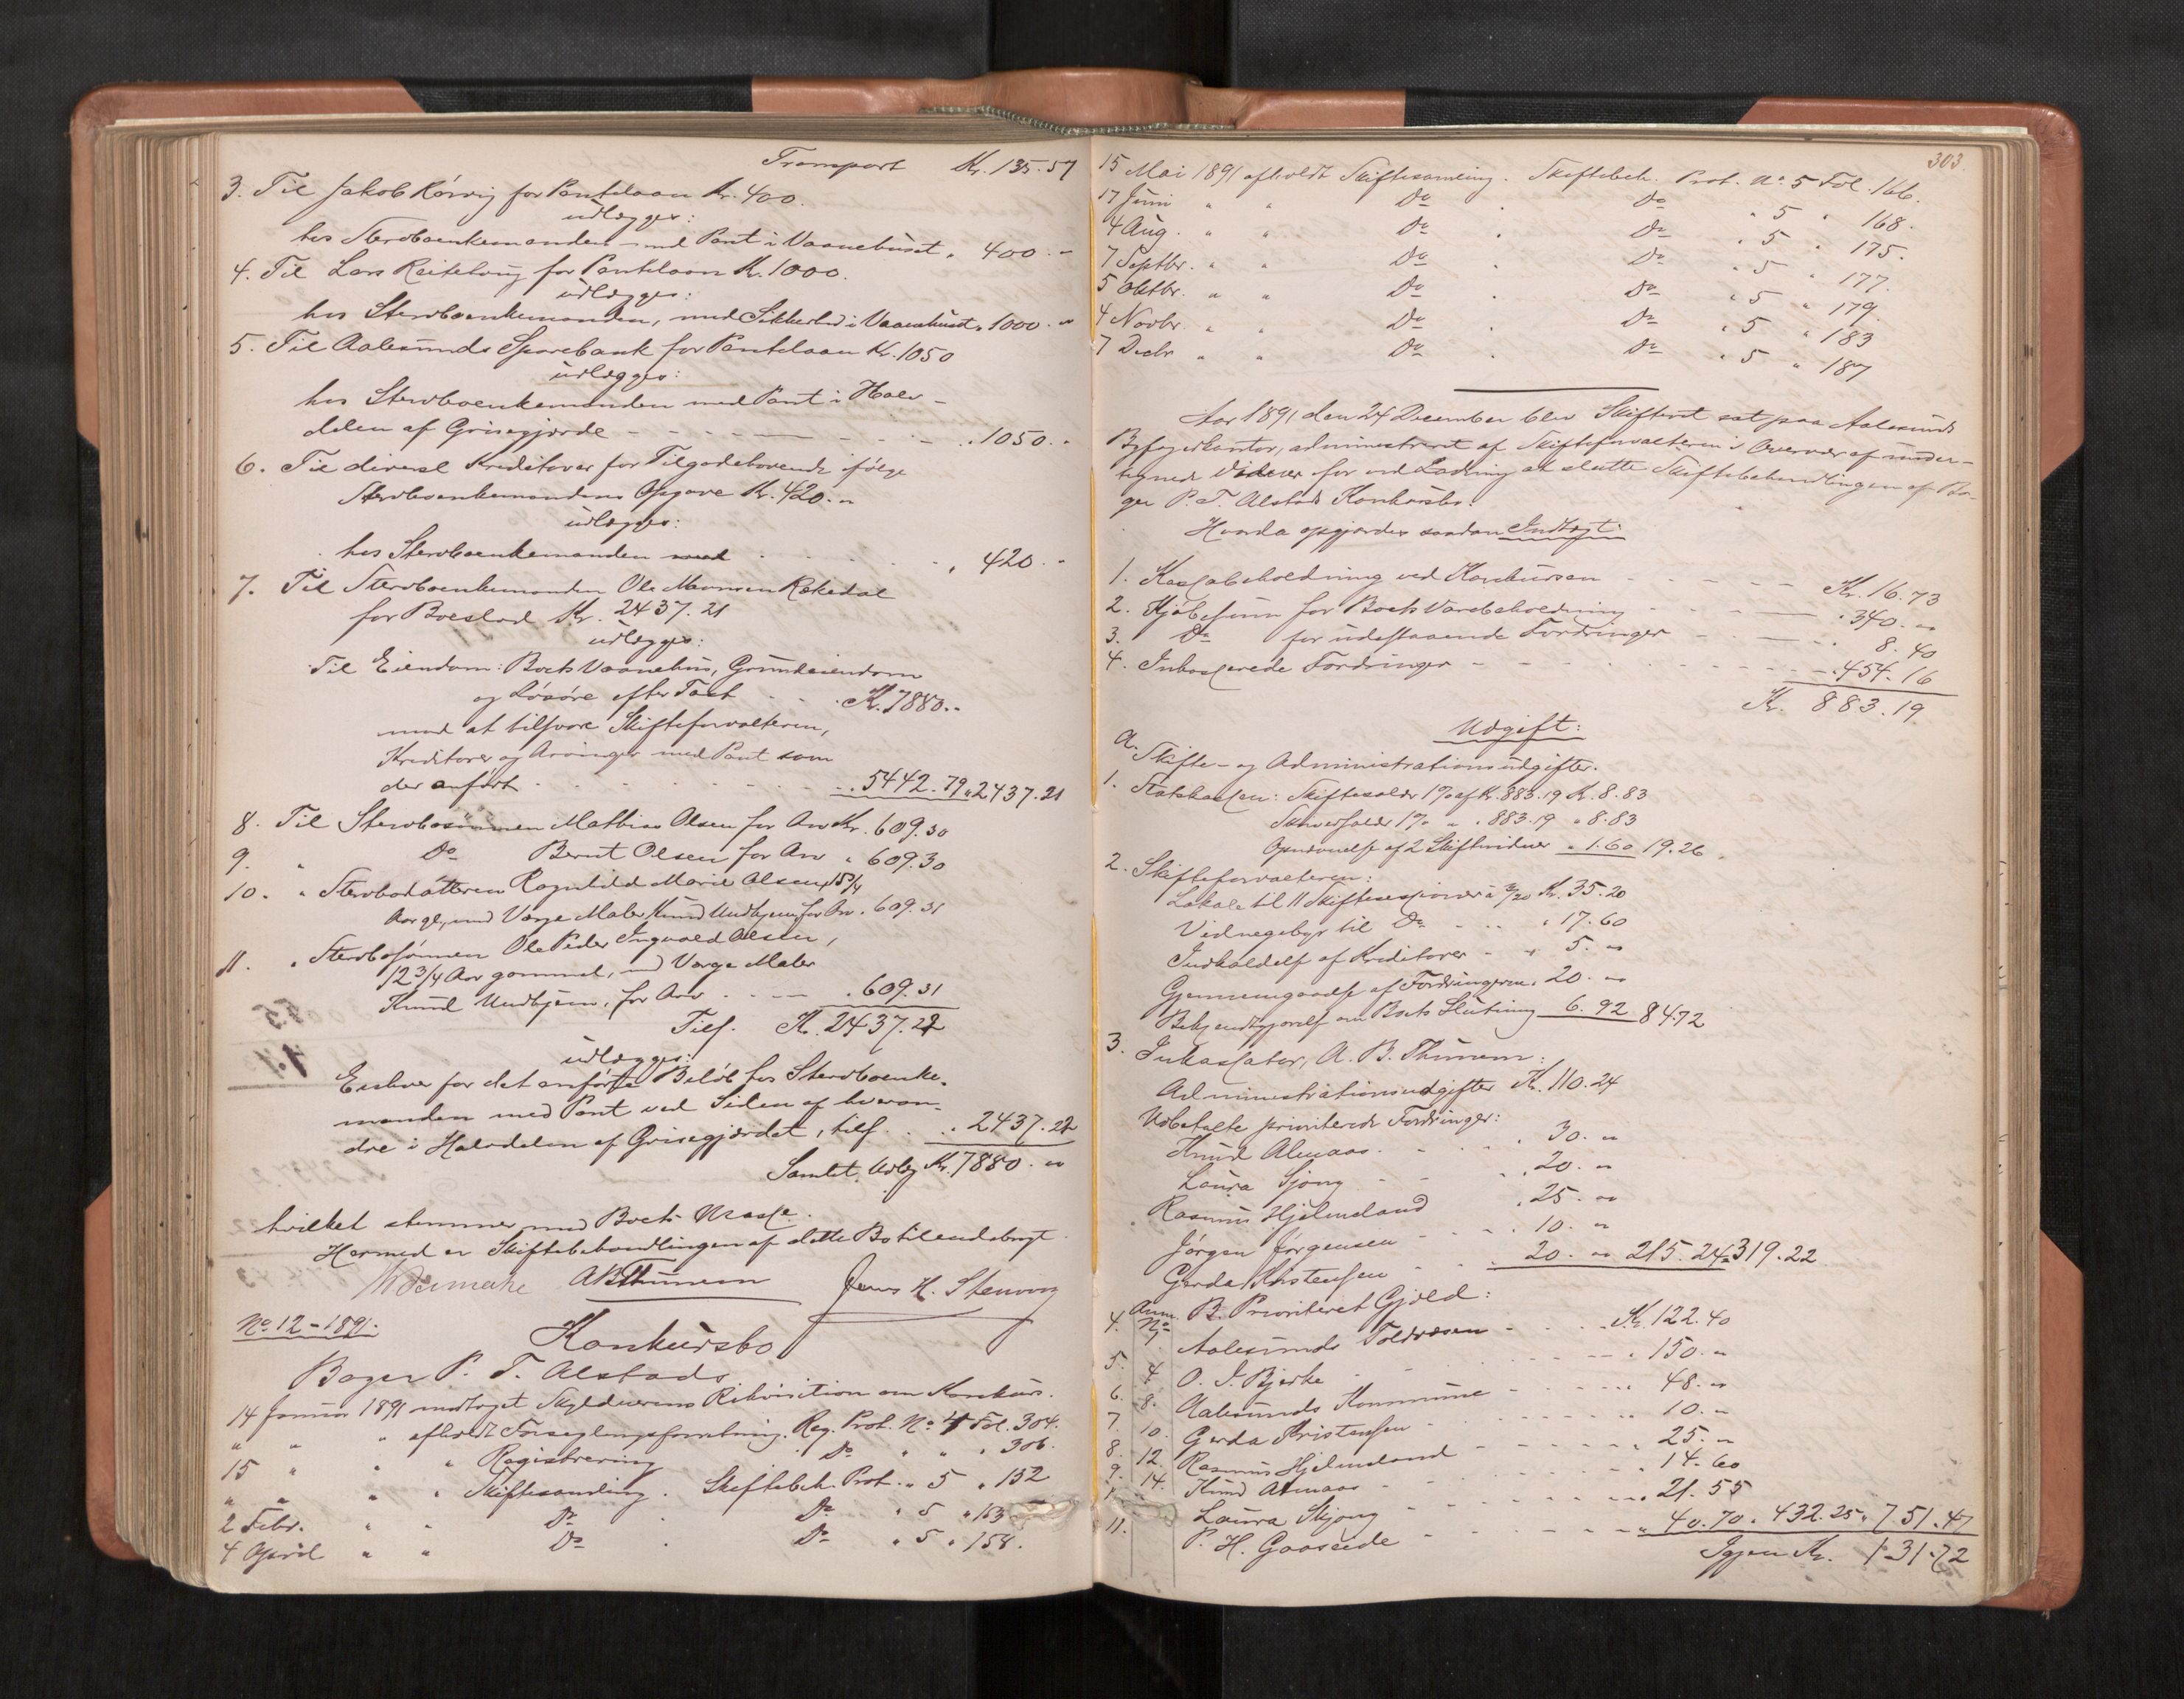 Transport Kr. 135.57
3. Til Jakob Rörvig for Pantelaan Kr. 400.
udlægges:
hos Sterboenkemanden med Pant i Vaanehuset " 400. "
4. Til Lars Reitelong for Pantelaan Kr. 1000.
udlægges:
hos Sterboenkemanden, med Sikkerhed i Vaanehuset " 1000. "
5. Til Aalesunds Sparebank for Pantelaan Kr. 1050
udlægges:
hos Sterboenkemanden med Pant i Halv-
delen af Grisegjærde - - - - " 1050. "
6. Til diverse Kreditorer for Tilgodehavende ifölge
Sterboenkemandens Opgave Kr. 420. "
udlægges:
hos Sterboenkemanden med . . . " 420. "
7. Til Sterboenkemanden Ole Monsen Rekedal
for Boeslod Kr. 2437.21
udlægges:
Til Eiendom: Boets Vaanehus, Grundeiendom
og Lösöre efter Taxt - - Kr. 7880. "
mod at tilsvare Skifteforvalteren,
Kreditorer og Arvinger med Pant som
der anfört - - - - - " 5442.79 " 2437.21
8. Til Sterbosönnen Mathias Olsen for Arv Kr. 609.30
9. " Do Bernt Olsen for Arv " 609.30
10. " Sterbodatteren Ragnhild Marie Olsen, 15 3/4
Aar gl., med Værge Maler Knud Undhjem, for Arv " 609.31
11. " Sterbosönnen Ole Peder Ingvald Olsen,
12 3/4 Aar gammel, med Værge Maler
Knud Undhjem, for Arv - - - " 609.31
Tils. Kr. 2437.22
udlægges:
Enhver for det anförte Belöb hos Sterboenke-
manden med Pant ved Siden af hveran-
dre i Halvdelen af Grisegjærdet, tils. . " 2437.22
Samlet Udlæg Kr. 7880. "
hvilket stemmer med Boets Masse.
Hermed er Skiftebehandlingen af dette Bo tilendebragt.
A B Thunem Jens H. Stenvaag
No 12 - 1891.
Konkursbo
Bager P. T. Alstads
14 Januar 1891 modtaget Skyldnerens Rekvisition om Konkurs.
" " " afholdt Forseglingsforretning. Reg. Prot. No 4 Fol. 304.
15 " " " Registrering Do " " " 306.
" " " " Skiftesamling. Skiftebeh. Prot. " 5 " 152
2 Febr. " " Do . Do " 5 " 153
4 April " " Do . Do " 5 " 158.
303
15 Mai 1891 afholdt Skiftesamling. Skiftebeh. Prot. No 5 Fol. 166.
17 Juni " " Do . Do " 5 " 168.
4 Aug. " " Do . Do " 5 " 175.
7 Septbr. " " Do . Do " 5 " 177.
5 Oktbr. " " Do . Do " 5 " 179.
4 Novbr. " " Do . Do " 5 " 183
7 Decbr " " Do . Do " 5 " 187
Aar 1891 den 24 December blev Skifteret sat paa Aalesunds
Byfogedkontor, administreret af Skifteforvalteren i Overvær af under-
tegnede Vidner for ved Lodning at slutte Skiftebehandlingen af Ba-
ger P. T. Alstads Konkursbo.
Hvorda opgjordes saadan Indtægt:
1. Kassabeholdning ved Konkursen - - - Kr. 16.73
2. Kjöbesum for Boets Varebeholdning - - " 340. "
3. Do for udestaaende Fordringer - - " 8.40
4. Inkasserede Fordringer - - - - " 454.16
Kr. 883.19
Udgift:
A. Skifte- og Administrationsudgifter.
1. Statskassen: Skiftesalær 1% af Kr. 883.19 Kr. 8.83
Skriversalær 1% " " 883.19 " 8.83
Opnævnelse af 2 Skiftevidner " 1.60 19.26.
2. Skifteforvalteren:
Lokale til 11 Skiftesessioner à 3/20 Kr. 35.20
Vidnegebyr til Do - - - " 17.60
Indkaldelse af Kreditorer - " 5. "
Gjennemgaaelse af Fordringerne " 20. "
Bekjendtgjørelse om Boets Slutning 6.92 84.72
3. Inkassator, A. B. Thunem:
Administrationsudgifter Kr. 110.24
Udbetalte prioriterede Fordringer:
Knud Almaas. - - - " 30. "
Laura Sjong - - - " 20. "
Rasmus Hjelmeland " 25. "
Jörgen Jörgensen - - " 10. "
Gerda Kristensen - - " 20. " 215.24 " 319.22
Anm. B. Prioriteret Gjæld:
No
4. 1. Aalesunds Toldvæsen - - - Kr. 122.40
5. 4. O. I. Bjerke - - - - " 150. "
6. 8. Aalesunds Kommune - - - " 48. "
7. 10. Gerda Kristensen - - - " 10. "
8. 12. Rasmus Hjelmeland - - - " 25. "
9. 14. Knud Almaas - - - - " 14.60
Laura Skjong - - - - " 21.55
11. P. H. Gaaseide - - - " 40.70 " 432.25 " 751.47
Igjen Kr. 131.72